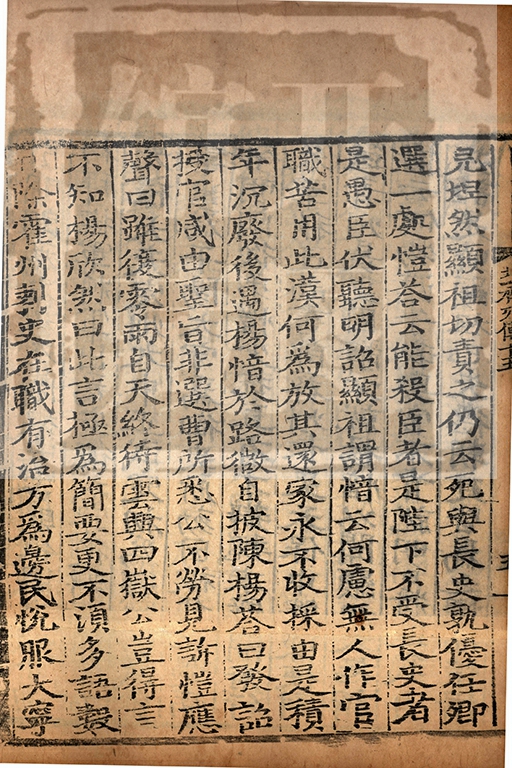 見焜然顯祖切責之仍云死與長史孰優任卿
選一處愷荅云能殺臣者是陛下不受長史者
是愚臣伏聽明詔顯祖謂愔云何慮無人作官
職苦用此漢何爲放其還家永不收採由是積
年沉廢後遇楊愔於路微自披陳楊荅曰發詔
授官咸由聖旨非選曹所悉公不勞見訴愷應
聲曰雖復零雨自天終待雲興四嶽公豈得言
不知楊欣然曰此言極爲簡要更不湏多語數
日除霍州刺史在職有治方爲邊民恱服大寧